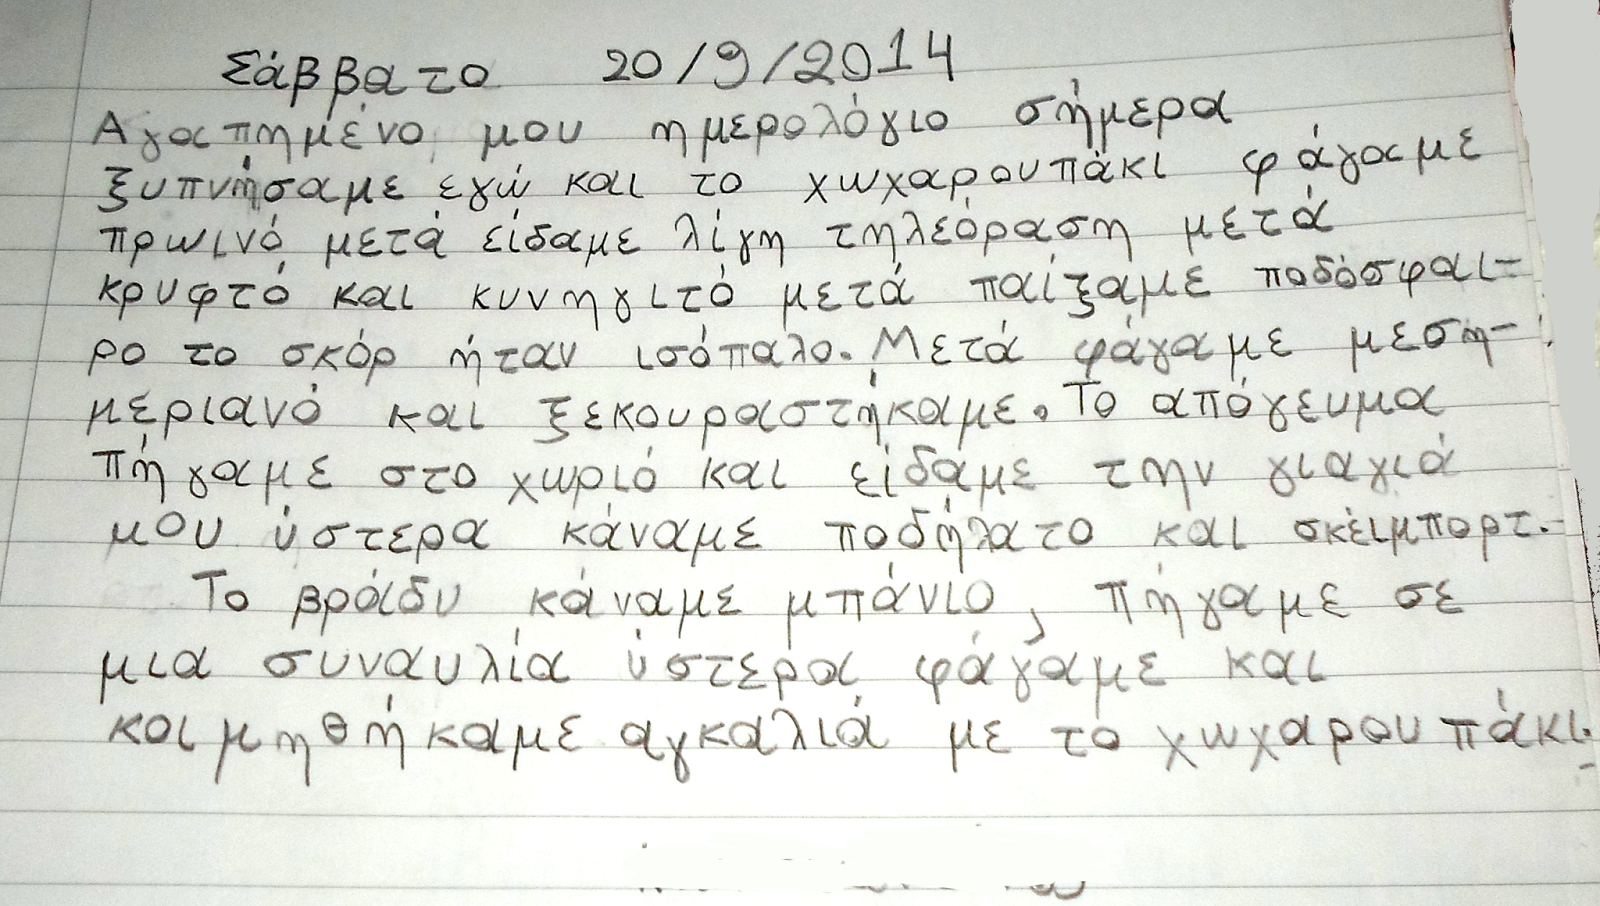 Σάββατο 20/9/2014
Αγαπημένο μου ημερολόγιο σήμερα
ξυπνήσαμε εγώ και το χωχαρουπάκι φάγαμε
πρωινό μετά είδαμε λίγη τηλεόραση μετά
κρυφτό και κυνηγιτό μετά παίξαμε ποδόσφαι-
ρο το σκόρ ήταν ισόπαλο. Μετά φάγαμε μεση-
μεριανό και ξεκουραστήκαμε. Το απόγευμα
πήγαμε στο χωριό και είδαμε την γιαγιά
μου ύστερα κάναμε ποδήλατο και σκέιμπορτ.
Το βράδυ κάναμε μπάνιο, πήγαμε σε
μια συναυλία ύστερα φάγαμε και
κοιμηθήκαμε αγκαλιά με το χωχαρουπάκι.